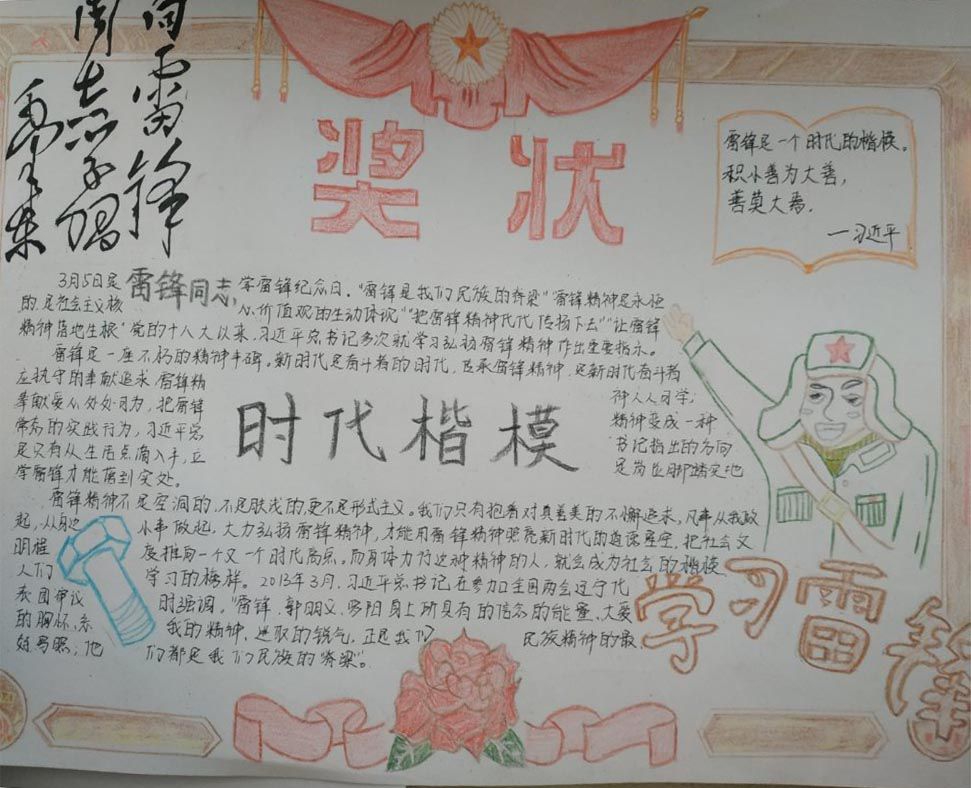 向雷锋
同志学习
毛泽东
奖状
雷锋是一个时代的楷模。
积小善为大善，
善莫大焉.
—习近平
3月5日是雷锋同志,学雷锋纪念日。"雷锋是我们民族的脊梁""雷锋精神是永恒
的,是社会主义核心价值观的生动体现""把雷锋精神代代传扬下去""让雷锋
精神落地生根"党的十八大以来,习近平总书记多次就学习弘扬雷锋精神作出重要指示。
雷锋是一座不朽的精神丰碑。新时代是奋斗者的时代,雷锋精神,是新时代奋斗者
应执守的奉献追求,雷锋精神人人可学;
奉献爱心处处可为,把雷锋精神变成一种
的实践行为,习近平总书记指出的方向
是只有从生活点滴入手,立足岗位脚踏实地
学雷锋才能落到实处。
时代楷模
雷锋精神不是空洞的,不是肤浅的,更不是形式主义。我们只有抱着对真善美的不懈追求,凡事从我做
起,从身边小事做起,大力弘扬雷锋精神,才能用雷锋精神照亮新时代的道德星空,把社会文
明程度推向一个又一个时代高点。而身体力行这种精神的人,就会成为社会的楷模,
人们学习的榜样。2013年3月,习近平总书记在参加全国两会辽宁代
表团审议时强调,"雷锋、郭明义、罗阳身上所具有的信念的能量、大爱
的胸怀、忘我的精神、进取的锐气,正是我们民族精神的最
好写照;他们都是我们民族的"脊梁"。
学习雷锋